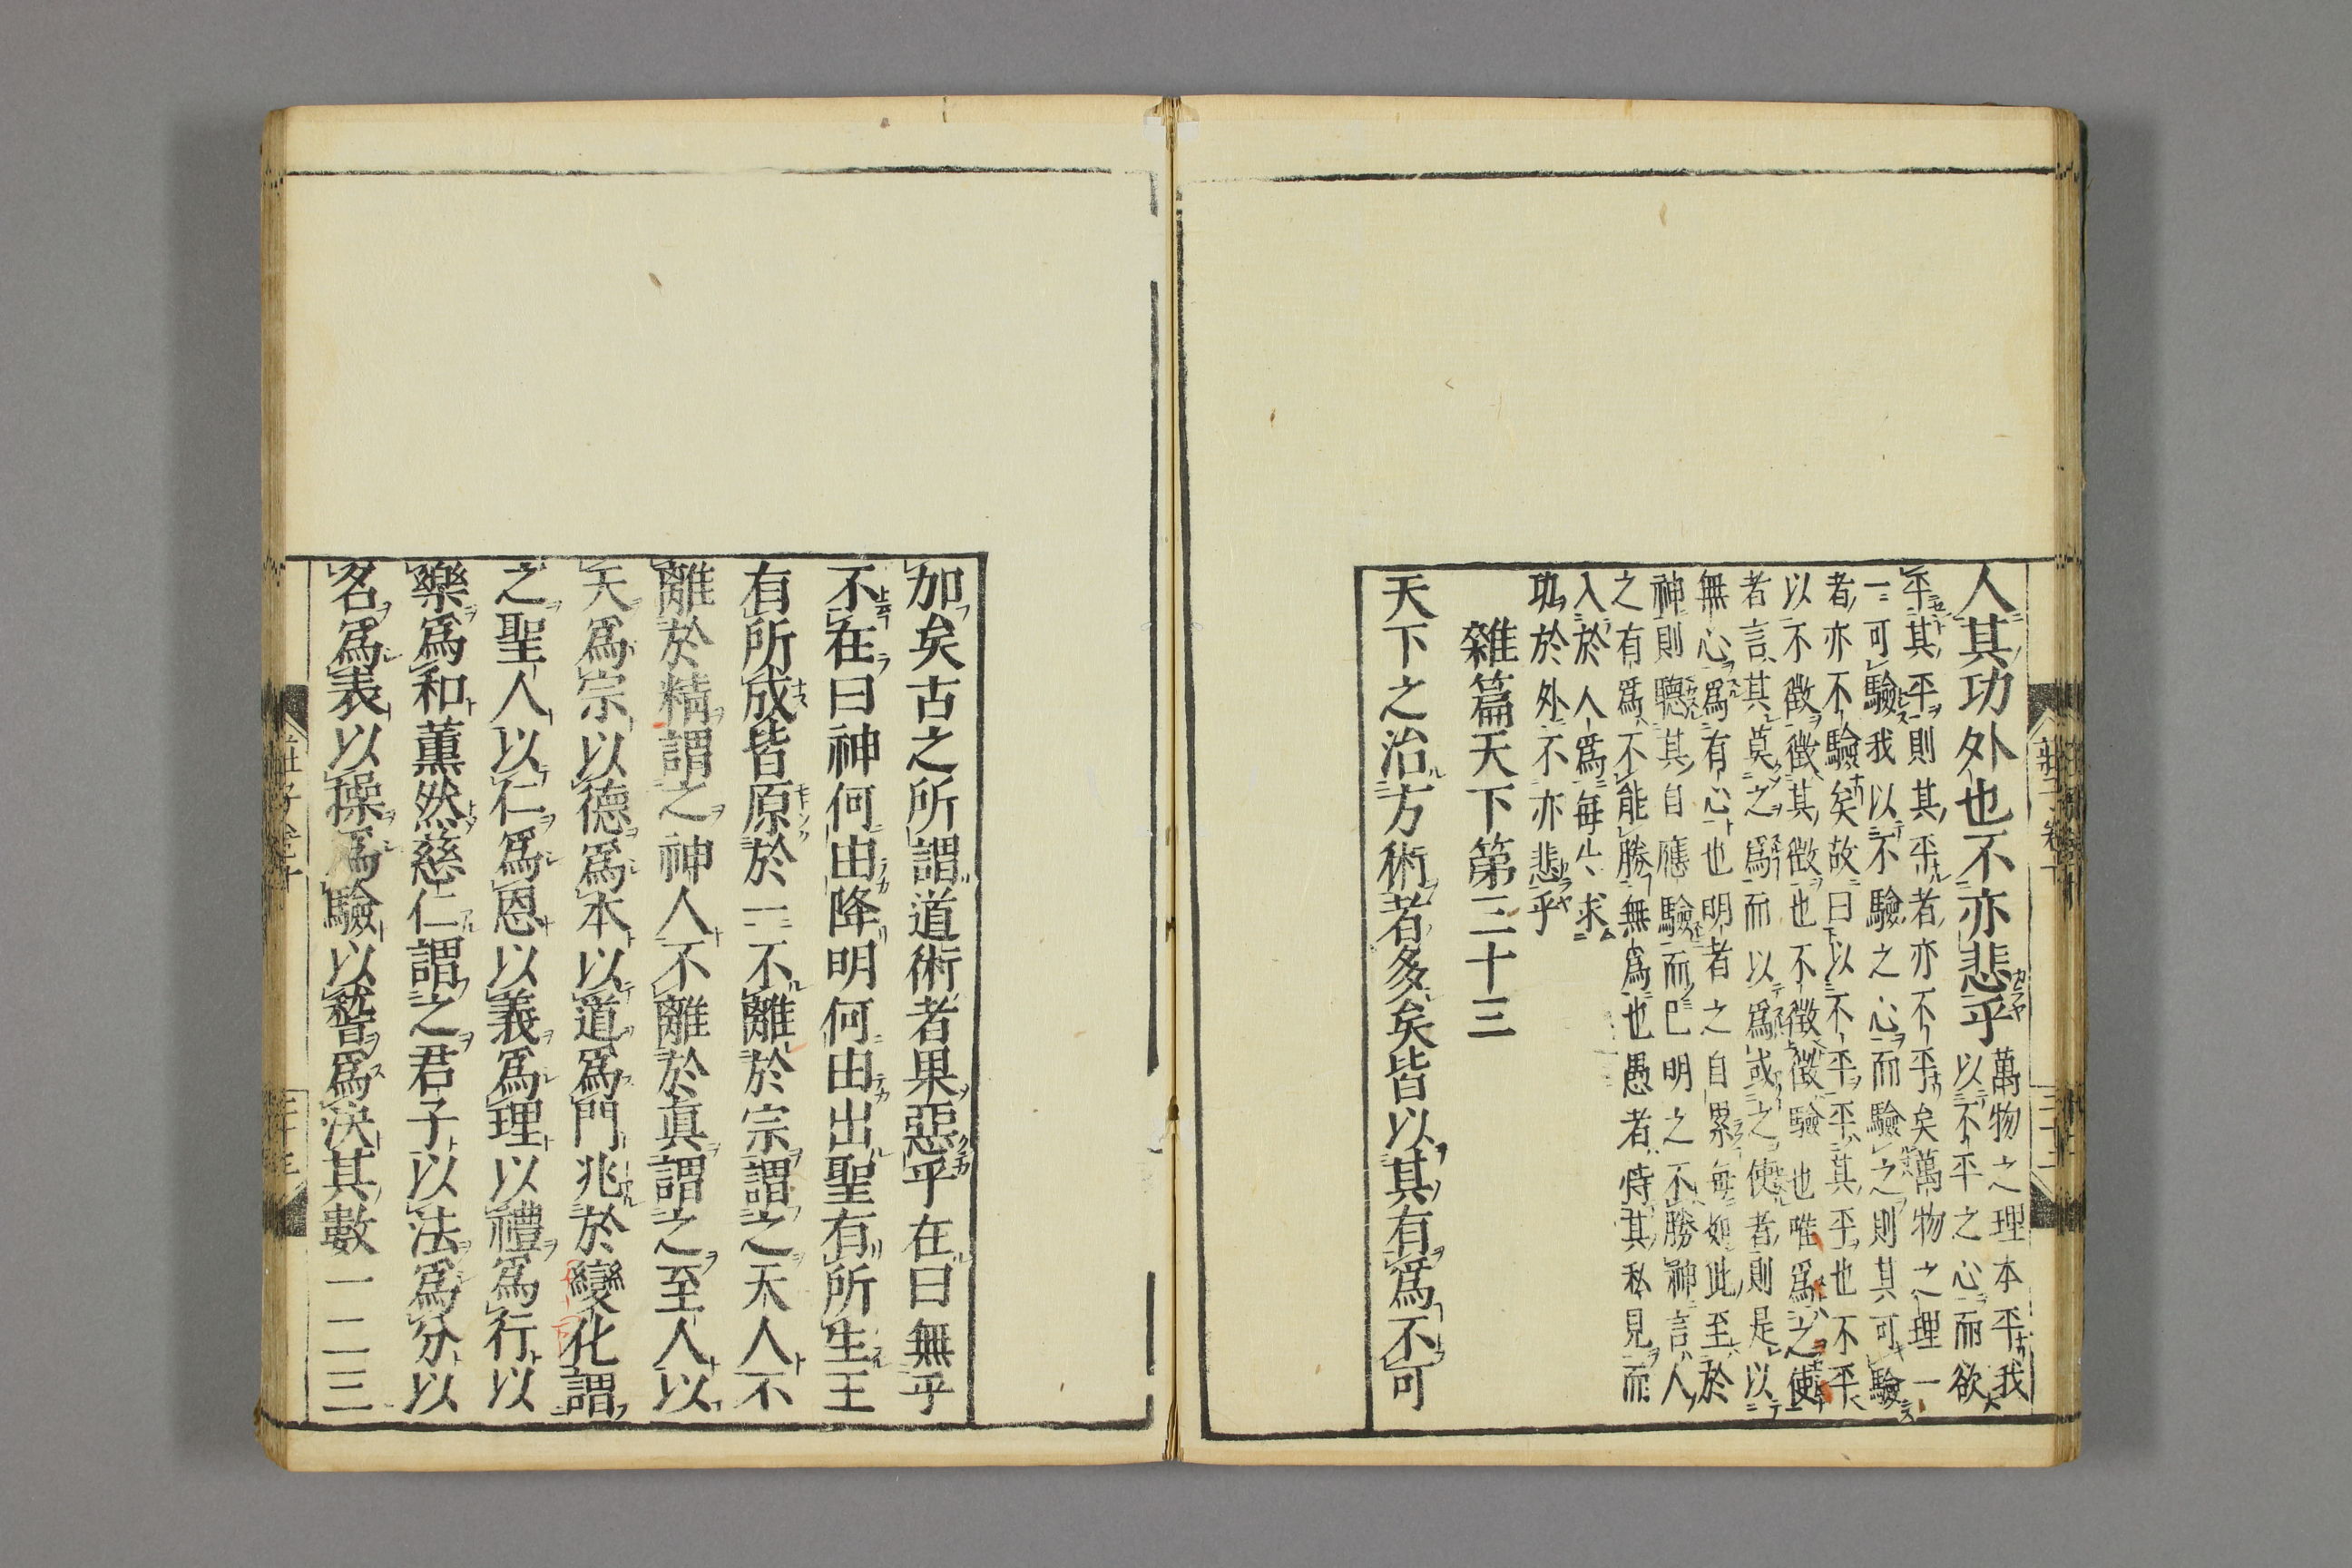 人其功外也不亦悲乎 萬物之理本平我
以不平之心而欲
平其平則其平者亦不平矣萬物之理一
一可驗我以不驗之心而驗之則其可驗
者亦不驗矣故曰以不平平其平也不平
以不徵徵其徵也不徵徵驗也唯爲之使
者言其莫之爲而以爲或之使者則是以
無心爲有心也明者之自累每如此至於
神則聽其自應驗而已明之不勝神言人
之有爲不能勝無爲也愚者恃其私見而
入於人爲每每求
功於外不亦悲乎
雜篇天下第三十三
天下之治方術者多矣皆以其有爲不可
加矣古之所謂道術者果惡乎在曰無乎
不在曰神何由降明何由出聖有所生王
有所成皆原於一不離於宗謂之天人不
離於精謂之神人不離於真謂之至人以
天爲宗以德爲本以道爲門兆於變化謂
之聖人以仁爲恩以義爲理以禮爲行以
樂爲和薰然慈仁謂之君子以法爲分以
名爲表以操爲驗以稽爲決其數一二三